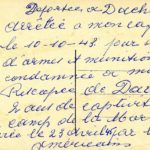 Déportée à Dach
arrêtée a mon
le 10-10-43. pour
d'armes et munition
condamnée a m
Rescapée de Dac
2 ans de captivit
camp de la Mor
le 23 avril par l
américains